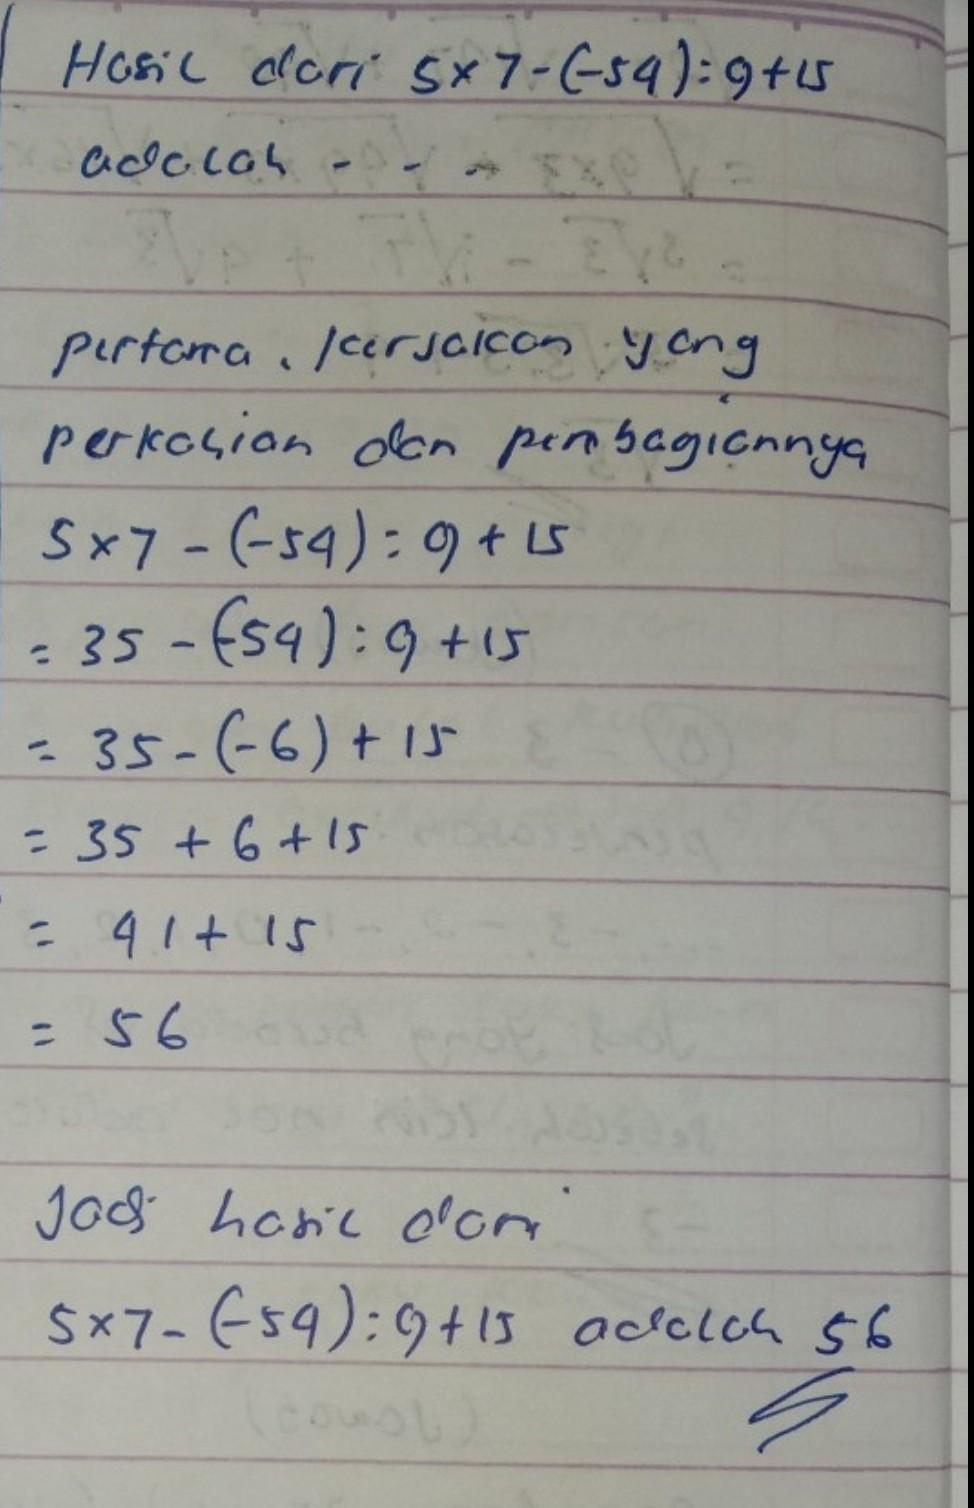 Hasil dari 5x7-(-54):9+15
adalah - - -
pertama, kerjakan yang
perkalian dan pembagiannya
5x7-(-54):9+15
= 35-(-54):9+15
= 35-(-6)+15
= 35+6+15
= 41+15
= 56
Jadi hasil dari
5x7-(-54):9+15 adalah 56